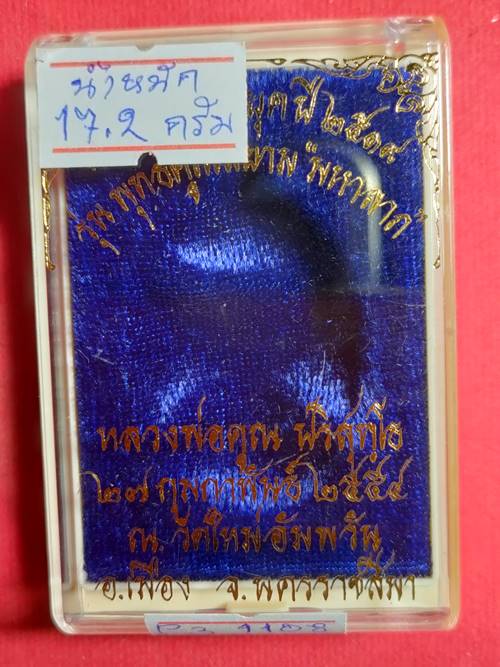 น้ำหนัก
17.2 ครัม
ปี ๒๕๑๙
รุ่น พุทธคูณสยาม "มหาลาภ"
หลวงพ่อคูณ ปริสุทฺโธ
๒๗ กุมภาพันธ์ ๒๕๕๔
ณ. วัดใหม่อัมพวัน
อ.เมือง จ.นครราชสีมา